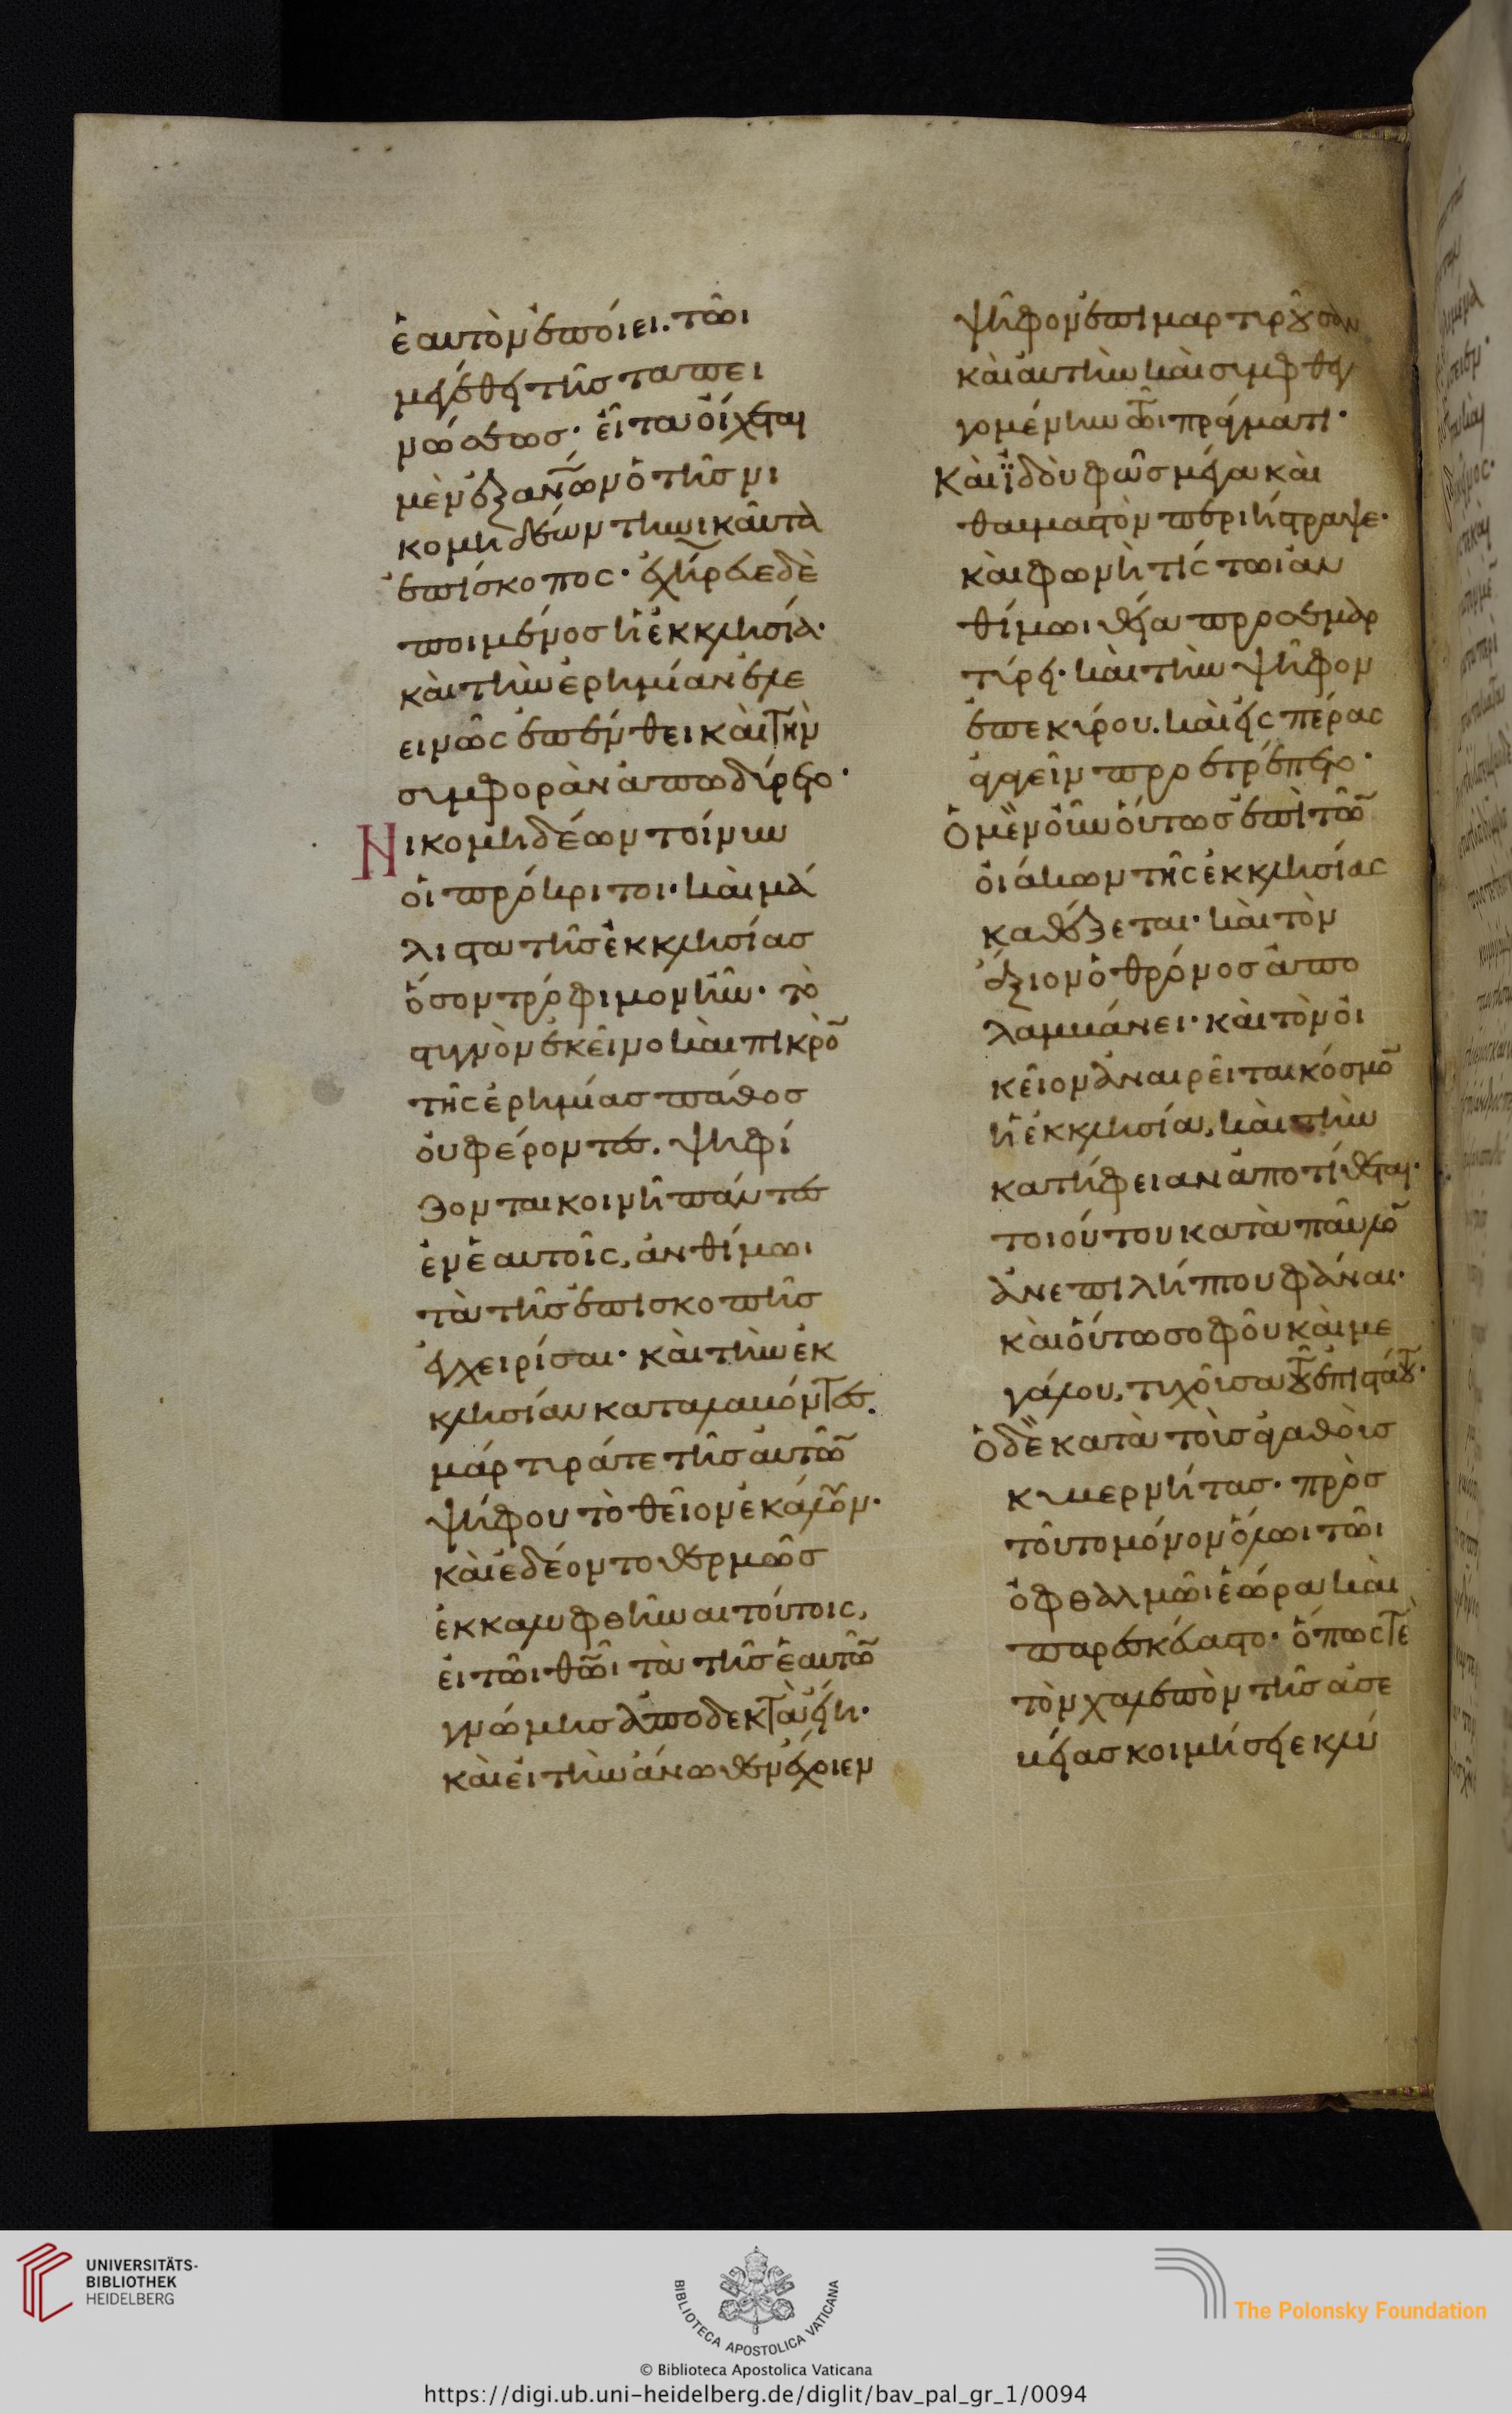 ἑαυτὸν ἐποίει. τῶι
μεγέθει τῆσ ταπει
νώσεωσ· εἶτα οἴχεται
μὲν ἐξ ἀνων ὁ τῆσ νι
κομηδέων τηνικαῦτα
ἐπίσκοποσ· ἐχήρευε δὲ
ποιμένοσ ἡ ἐκκλησία·
καὶ τὴν ἐρημίαν ἐλε
εινῶσ ἐπένθει καὶ τὴν
συμφορὰν ἀπωδύρετο·
Νικομηδέων τοίνυν
οἱ πρόκριτοι· καὶ μά
λιστα τῆσ ἐκκλησίασ
ὅσον τρόφιμον ἦν· τὸ
στυγνὸν ἐκεῖνο καὶ πικρὸ
τῆσ ἐρημίασ πάθοσ
οὐ φέροντεσ. ψηφί
ζονται κοινῆ πάντεσ
ἐν ἑαυτοῖσ, ἀνθίμωι
τὰ τῆσ ἐπισκοπῆσ
ἐγχειρίσαι· καὶ τὴν ἐκ
κλησίαν καταλαβόντεσ.
μάρτυρά τε τῆσ αὐτῶ
ψήφου τὸ θεῖον ἐκάλουν·
καὶ ἐδέοντο θερμῶσ
ἐκκαλυφθῆναι τούτοισ,
εἰ τῶι θωι τὰ τῆσ ἑαυτῶ
γνώμησ ἀποδεκτὰ εἴη·
καὶ εἰ τὴν ἄνωθεν ἔχοιεν
ψῆφον ἐπιμαρτυροῦσαν
καὶ αὐτὴν καὶ συμφθεγ
γομένην τῶι πράγματι·
Καὶ ἰδοὺ φῶσ μέγα καὶ
θαυμαστὸν περιήστραψε·
καὶ φωνή τισ τῶι ἀν
θίμωι θεία προσεμαρ
τύρει· καὶ τὴν ψῆφον
ἐπεκύρου. καὶ εἰσ πέρασ
ἀγαγεῖν προετρέπετο·
Ὁ μὲν οὖν οὕτωσ ἐπὶ τῶ
οἰάκων τῆσ ἐκκλησίασ
καθέζεται· καὶ τὸν
ἄξιον ὁ θρόνοσ ἀπο
λαμβάνει· καὶ τὸν οἰ
κεῖον ἀναιρεῖται κόσμο
ἡ ἐκκλησία, καὶ τὴν
κατήφειαν ἀποτίθεται·
τοιούτου κατὰ παῦλο
ἀνεπιλήπτου φάναι·
καὶ οὕτω σοφοῦ καὶ με
γάλου, τυχοῦσα τοῦ ἐπιστάτου·
Ὁ δὲ κατὰ τοὺσ ἀγαθοὺσ
κυβερνήτασ· πρὸσ
τοῦτο μόνον ὅλωι τῶι
ὀφθαλμῶι ἑώρα καὶ
παρεσκεύαστο· ὅπωσ τε
τὸν χαλεπὸν τῆσ ἀσε
βείασ κοιμήσειε κλύ
UNIVERSITÄTS-
BIBLIOTHEK
HEIDELBERG
BIBLIOTECA APOSTOLICA VATICANA
The Polonsky Foundation
© Biblioteca Apostolica Vaticana
https://digi.ub.uni-heidelberg.de/diglit/bav_pal_gr_1/0094